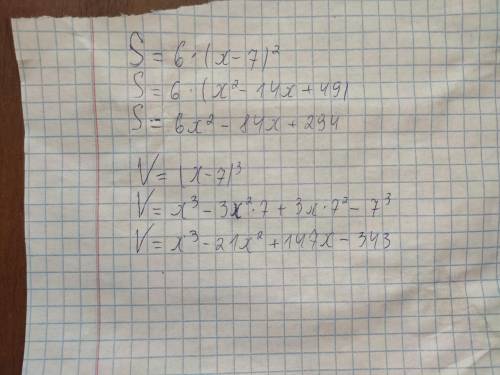 S = 6 · (x - 7)²
S = 6 · (x² - 14x + 49)
S = 6x² - 84x + 294
V = (x - 7)³
V = x³ - 3x² · 7 + 3x · 7² - 7³
V = x³ - 21x² + 147x - 343